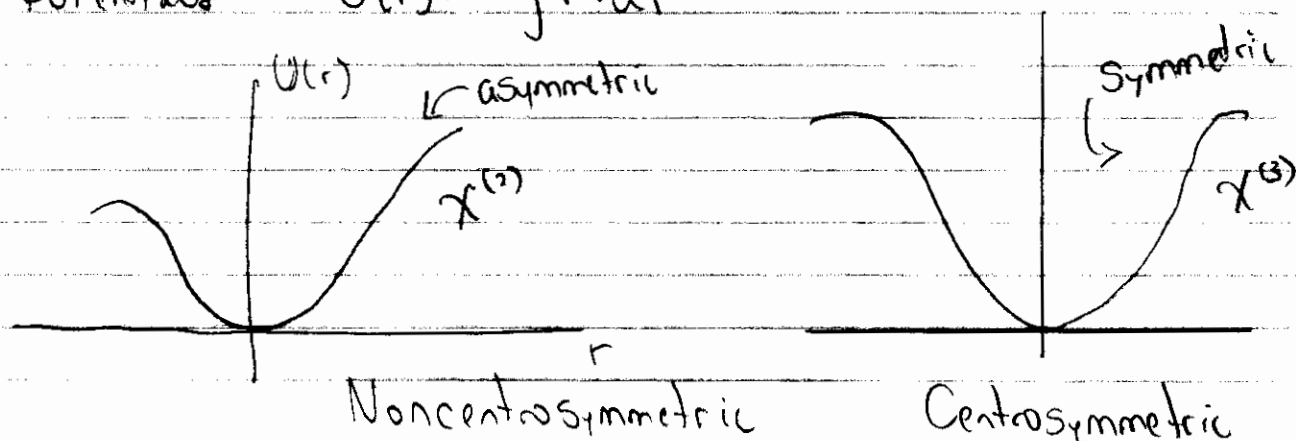 U(r)
asymmetric
Symmetric
χ⁽²⁾
χ⁽³⁾
r
Noncentrosymmetric
Centrosymmetric